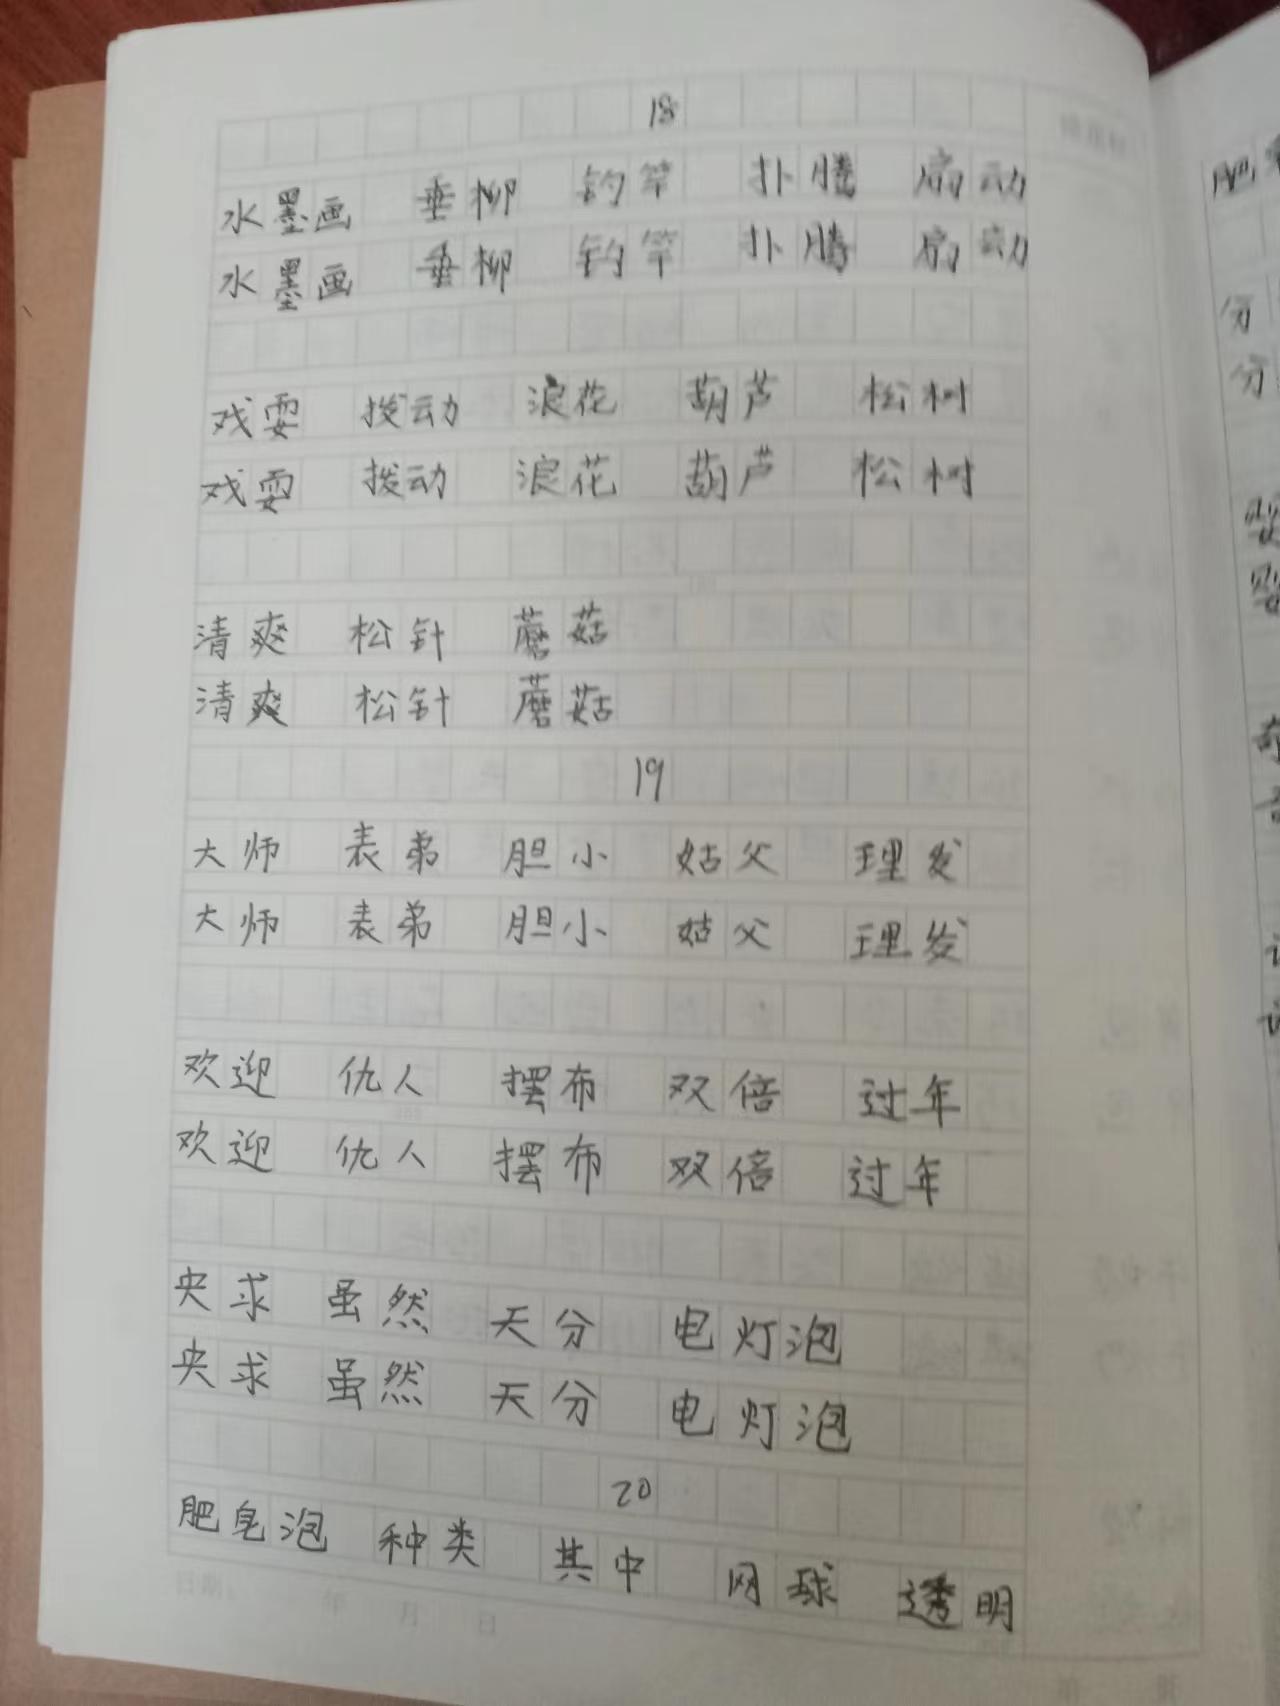 18
水墨画 垂柳 钓竿 扑腾 扇动
水墨画 垂柳 钓竿 扑腾 扇动
戏耍 拨动 浪花 葫芦 松树
戏耍 拨动 浪花 葫芦 松树
清爽 松针 蘑菇
清爽 松针 蘑菇
19
大师 表弟 胆小 姑父 理发
大师 表弟 胆小 姑父 理发
欢迎 仇人 摆布 双倍 过年
欢迎 仇人 摆布 双倍 过年
央求 虽然 天分 电灯泡
央求 虽然 天分 电灯泡
20
肥皂泡 种类 其中 网球 透明
日期: 年 月 日
分
分